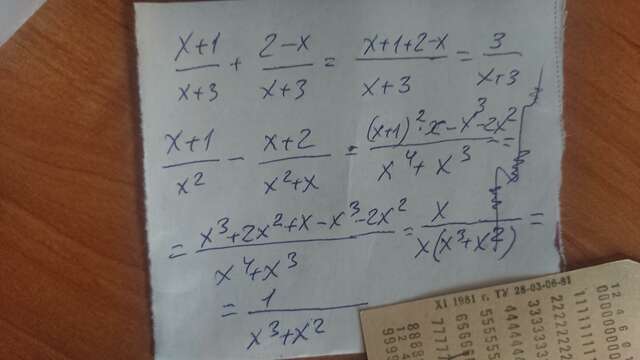 (x+1)/(x+3) + (2-x)/(x+3) = (x+1+2-x)/(x+3) = 3/(x+3)
(x+1)/x² - (x+2)/(x²+x) = ((x+1)²·x-x³-2x²)/(x⁴+x³) =
= (x³+2x²+x-x³-2x²)/(x⁴+x³) = x/(x(x³+x²)) =
= 1/(x³+x²)
XI 1981 г. ТУ 28-03-06-81